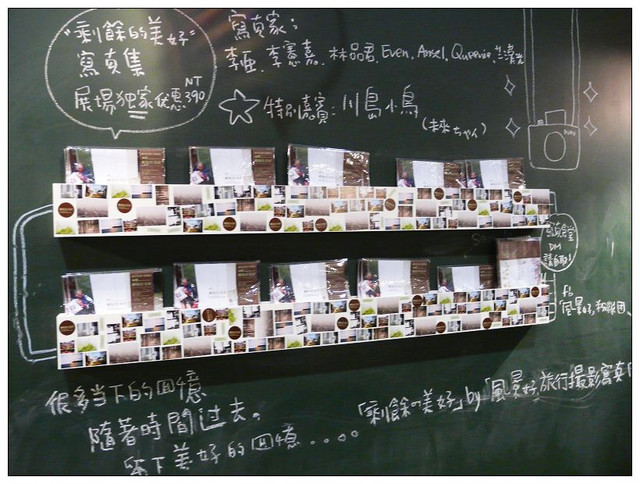 "剩餘的美好"
寫真集
展場独家优惠 NT 390
寫真家：
李亜、李憲嘉、林品君、Even、Ansel、Queenie、
特別嘉賓：川島小鳥
(未來ちゃん)
DM
很多当下的回憶
隨著時間过去。
留下美好的回憶....
「剩餘の美好」by「風景好旅行攝影寫真